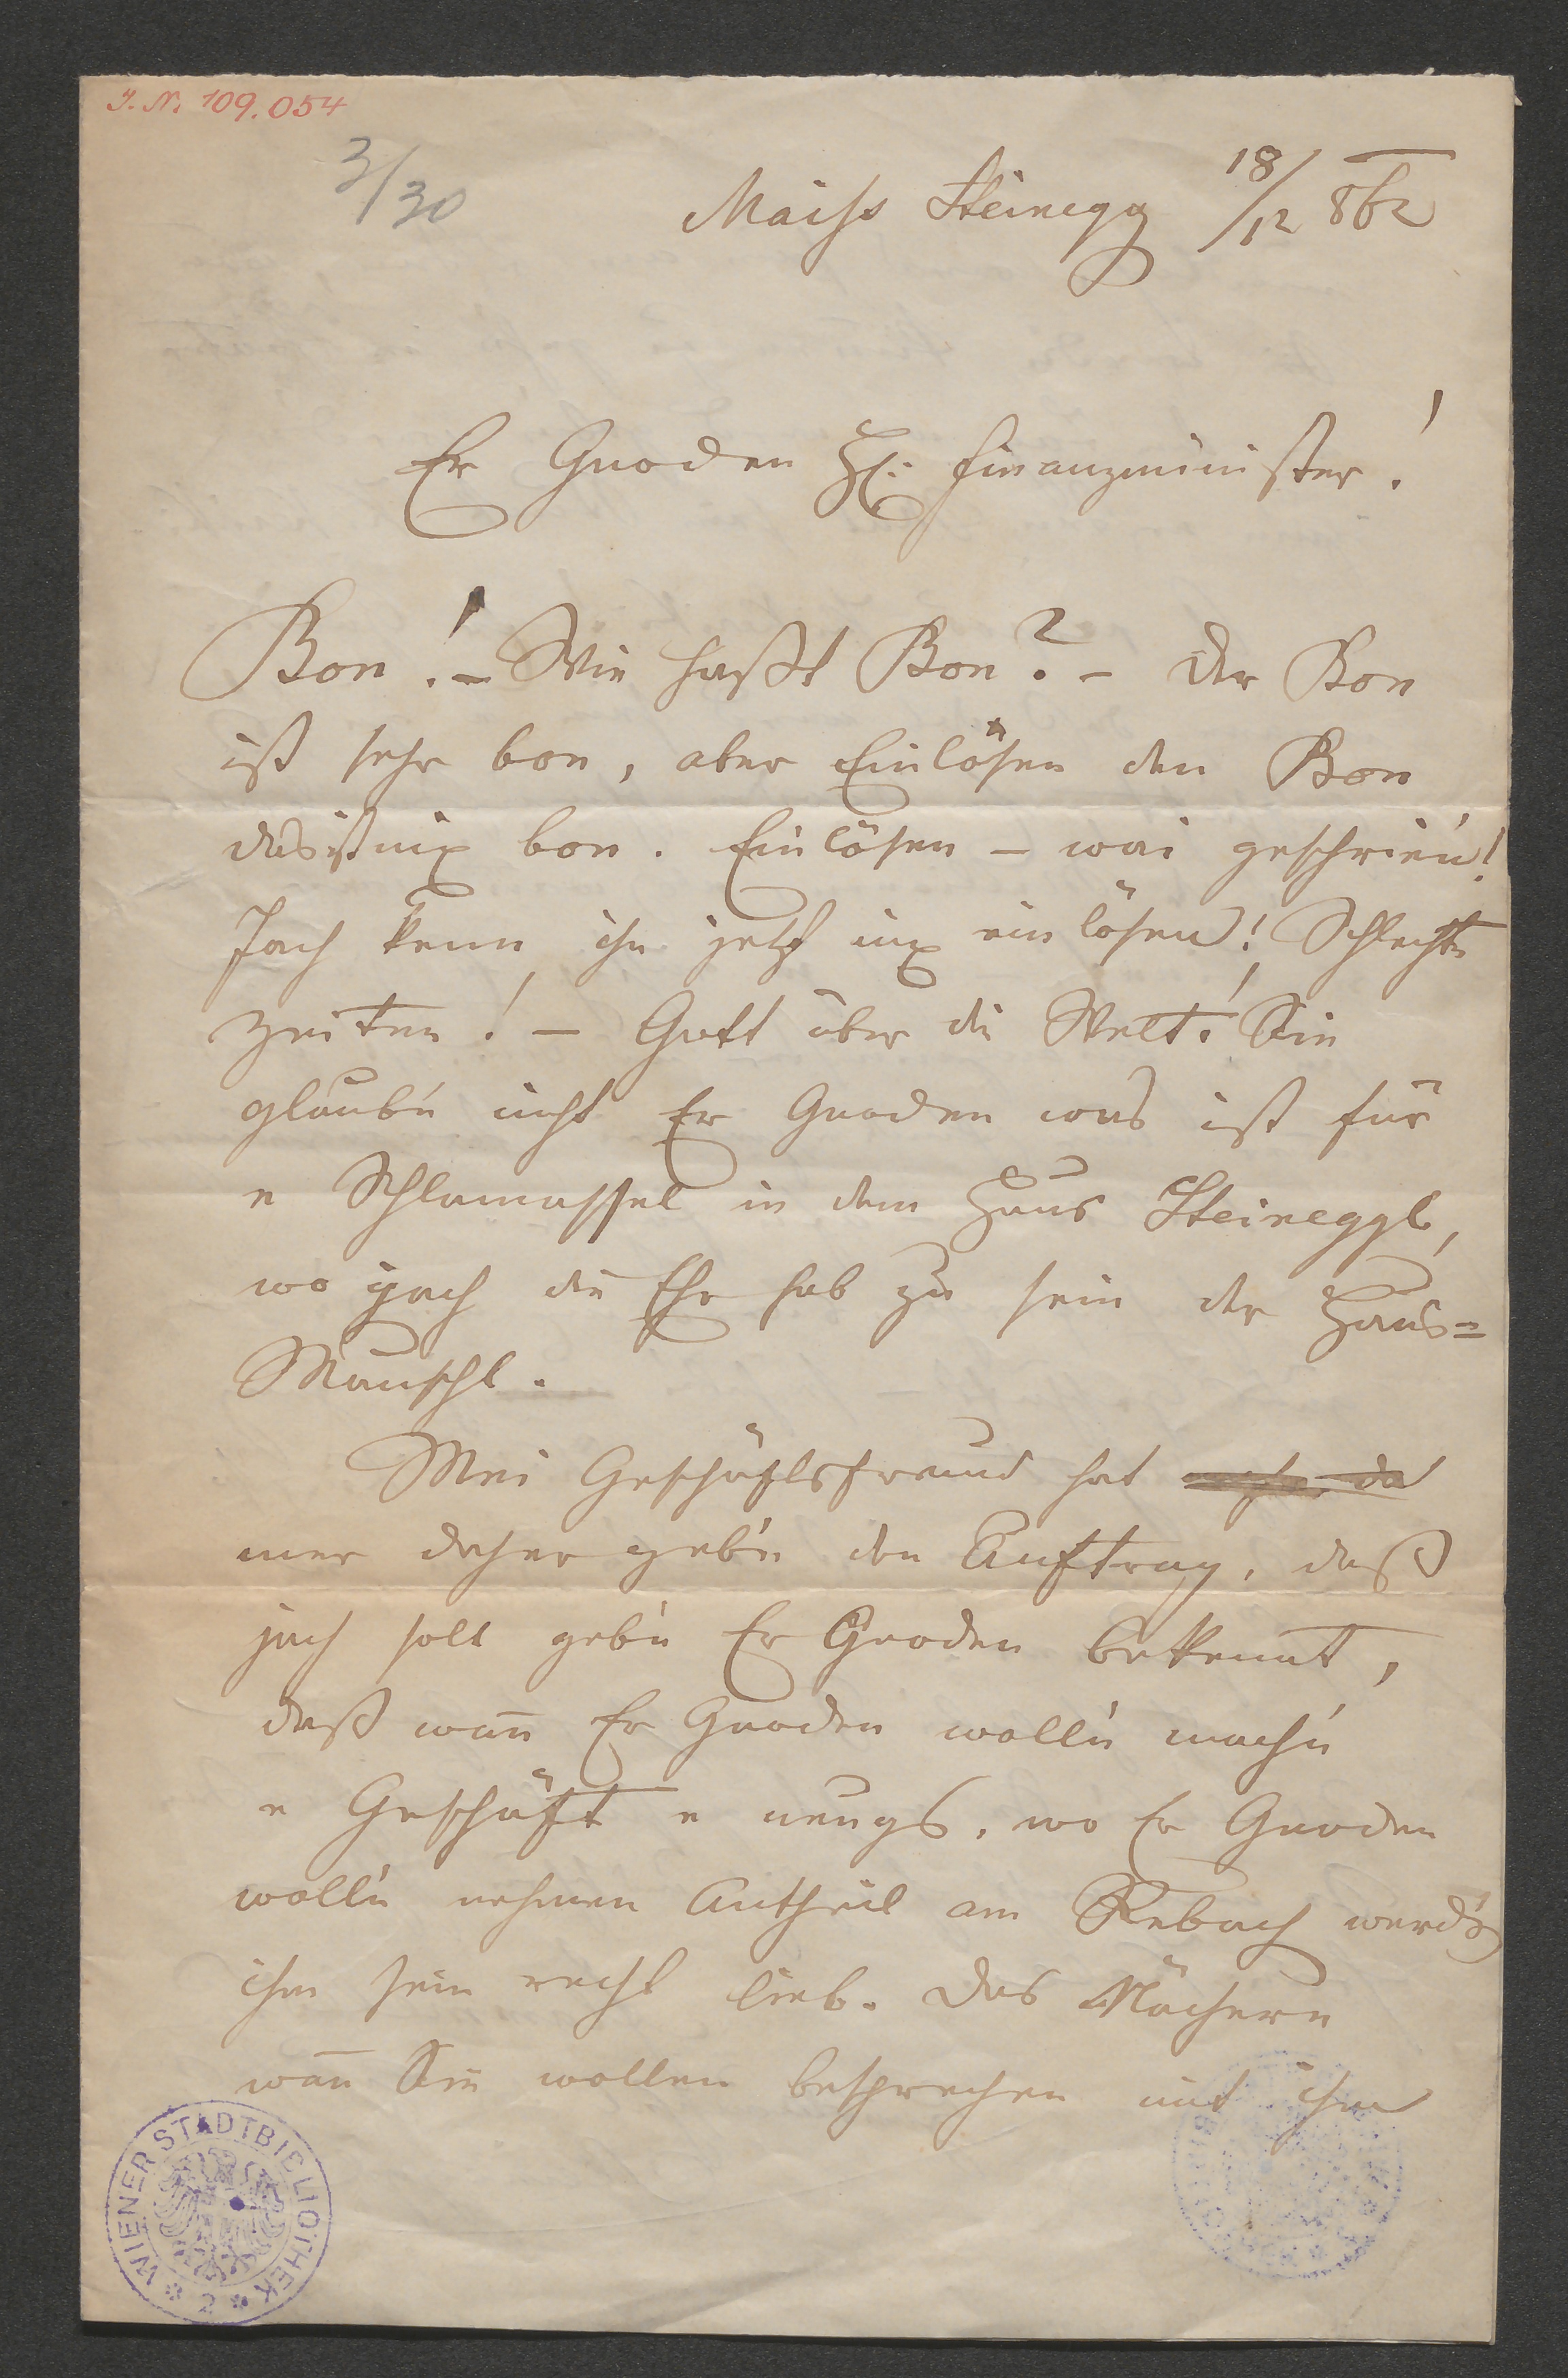 I. N. 109.054
3/30
Maiss Steinegg 18/12 862
Er Gnoden H: Finanzminister!
Bon! – Wie haßt Bon? – Der Bon
ist sehr bon, aber Einlösen den Bon
das ist nix bon. Einlösen – wai geschrien!
Jach kenn ihn jetzt nix einlösen! Schlechte
Zeiten! – Gott über die Welt! Sie
glaub'n nicht Er Gnoden was ist für
e Schlamassel in dem Haus Steineggl,
wo jach die Ehr hab zu sein der Haus=
Mauschl.
Mei Geschäftsfreund hat
mer daher geb'n den Auftrag, daß
jach soll geb'n Er Gnoden bekennt,
daß wan̄ Er Gnoden woll'n mach'n
e Geschäft e neugs, wo Er Gnoden
woll'n nehmen Antheil am Rebach werd's
ihm sein recht lieb. Das Nächere
wan̄ Sie wollen besprechen mit ihm
WIENER STADTBIBLIOTHEK
2